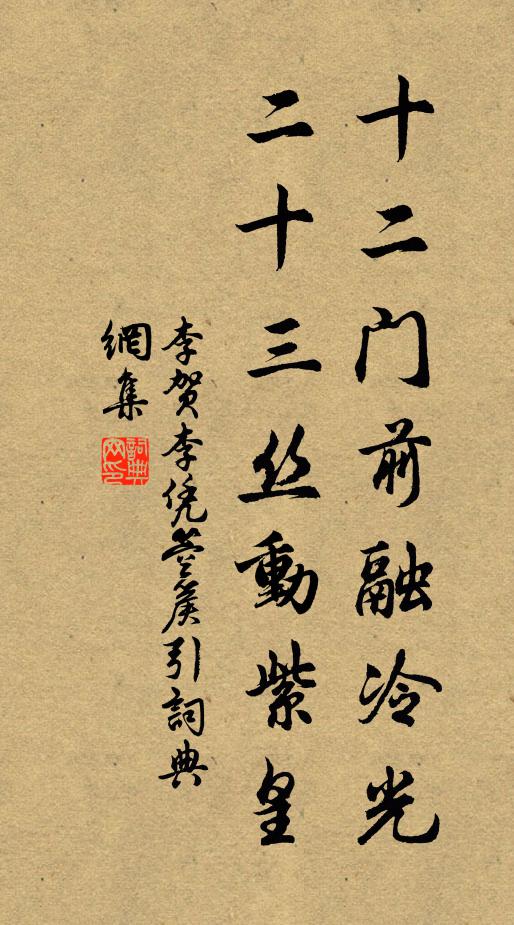 十二門前融冷光
二十三丝動紫皇
李賀李凭箜篌引詞典
網集
詞典
网印